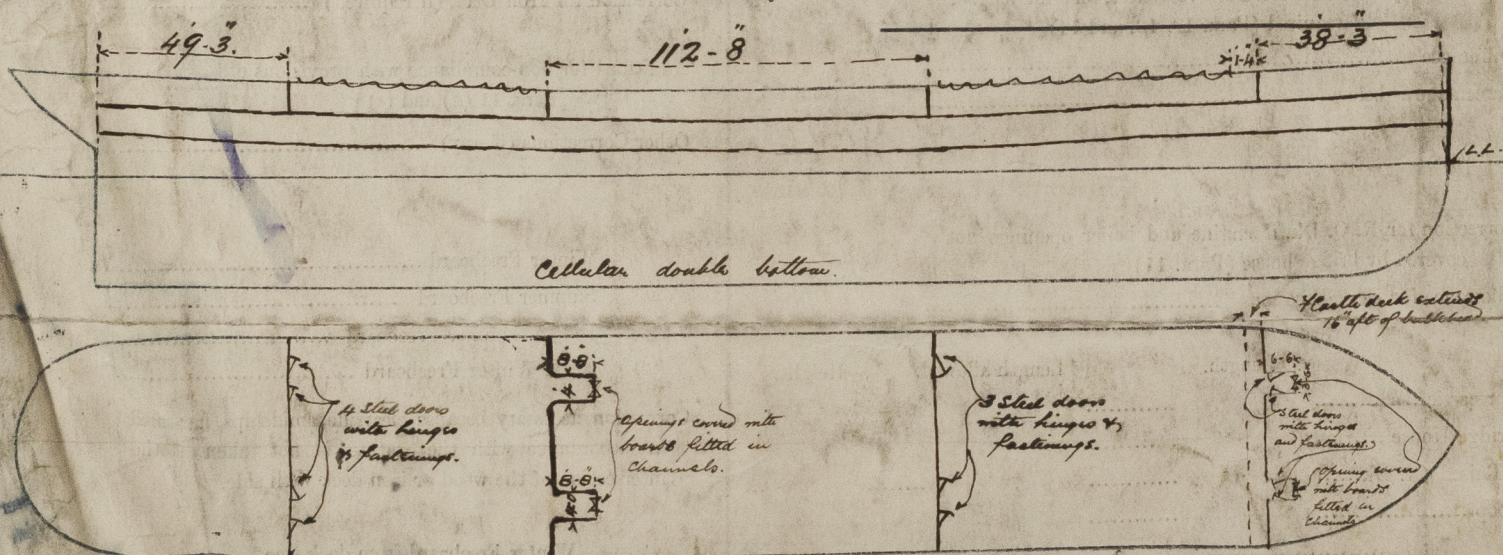 49'-3"
112'-8"
1'-4"
38'-3"
L.L.
Cellular double bottom.
F'Castle deck extends
16" aft of bulkhead.
8'-8"
4'
6'-6"
4 Steel doors
with hinges
& fastenings.
openings covered with
boards fitted in
channels.
3 Steel doors
with hinges &
fastenings.
Steel doors
with hinges
and fastenings.
8'-8"
opening covered
with boards
fitted in
channels